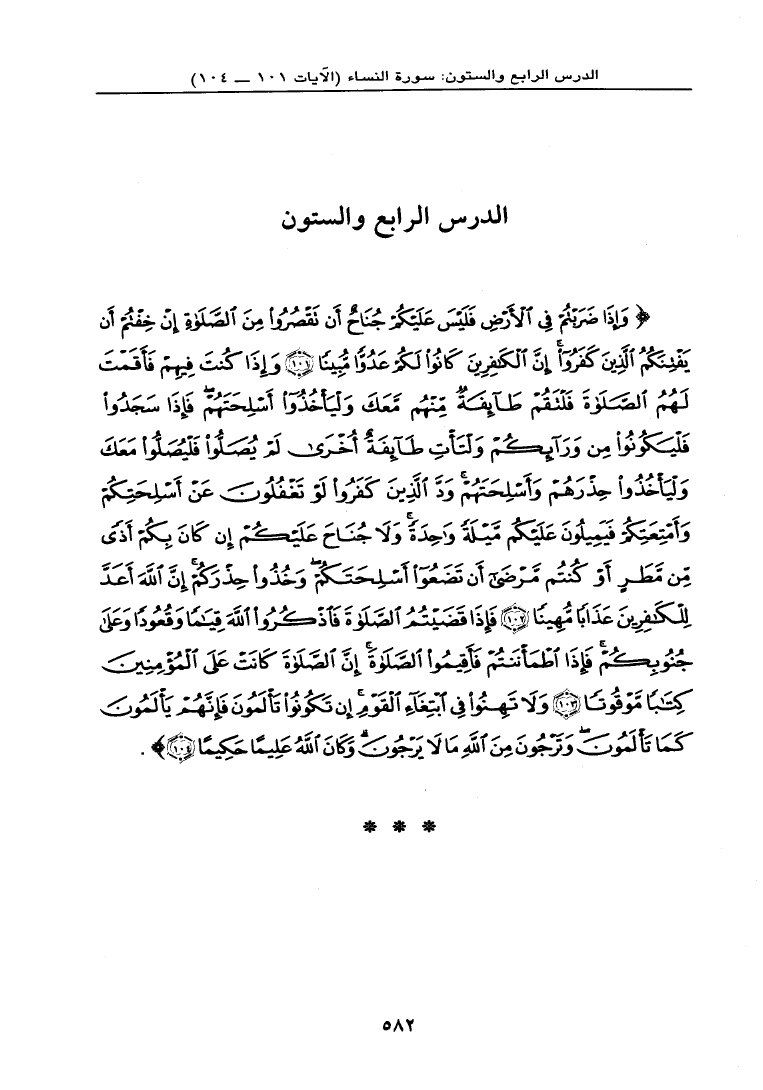 الدرس الرابع والستون: سورة النساء (الآيات ١٠١ ــ ١٠٤)
الدرس الرابع والستون
﴿ وَإِذَا ضَرَبْتُمْ فِي ٱلْأَرْضِ فَلَيْسَ عَلَيْكُمْ جُنَاحٌ أَن تَقْصُرُوا۟ مِنَ ٱلصَّلَوٰةِ إِنْ خِفْتُمْ أَن
يَفْتِنَكُمُ ٱلَّذِينَ كَفَرُوٓا۟ ۚ إِنَّ ٱلْكَٰفِرِينَ كَانُوا۟ لَكُمْ عَدُوًّا مُّبِينًا ١٠١ وَإِذَا كُنتَ فِيهِمْ فَأَقَمْتَ
لَهُمُ ٱلصَّلَوٰةَ فَلْتَقُمْ طَآئِفَةٌ مِّنْهُم مَّعَكَ وَلْيَأْخُذُوٓا۟ أَسْلِحَتَهُمْ ۖ فَإِذَا سَجَدُوا۟
فَلْيَكُونُوا۟ مِن وَرَآئِكُمْ وَلْتَأْتِ طَآئِفَةٌ أُخْرَىٰ لَمْ يُصَلُّوا۟ فَلْيُصَلُّوا۟ مَعَكَ
وَلْيَأْخُذُوا۟ حِذْرَهُمْ وَأَسْلِحَتَهُمْ ۗ وَدَّ ٱلَّذِينَ كَفَرُوا۟ لَوْ تَغْفُلُونَ عَنْ أَسْلِحَتِكُمْ
وَأَمْتِعَتِكُمْ فَيَمِيلُونَ عَلَيْكُم مَّيْلَةً وَٰحِدَةً ۚ وَلَا جُنَاحَ عَلَيْكُمْ إِن كَانَ بِكُمْ أَذًى
مِّن مَّطَرٍ أَوْ كُنتُم مَّرْضَىٰٓ أَن تَضَعُوٓا۟ أَسْلِحَتَكُمْ ۖ وَخُذُوا۟ حِذْرَكُمْ ۗ إِنَّ ٱللَّهَ أَعَدَّ
لِلْكَٰفِرِينَ عَذَابًا مُّهِينًا ١٠٢ فَإِذَا قَضَيْتُمُ ٱلصَّلَوٰةَ فَٱذْكُرُوا۟ ٱللَّهَ قِيَٰمًا وَقُعُودًا وَعَلَىٰ
جُنُوبِكُمْ ۚ فَإِذَا ٱطْمَأْنَنتُمْ فَأَقِيمُوا۟ ٱلصَّلَوٰةَ ۚ إِنَّ ٱلصَّلَوٰةَ كَانَتْ عَلَى ٱلْمُؤْمِنِينَ
كِتَٰبًا مَّوْقُوتًا ١٠٣ وَلَا تَهِنُوا۟ فِى ٱبْتِغَآءِ ٱلْقَوْمِ ۖ إِن تَكُونُوا۟ تَأْلَمُونَ فَإِنَّهُمْ يَأْلَمُونَ
كَمَا تَأْلَمُونَ ۖ وَتَرْجُونَ مِنَ ٱللَّهِ مَا لَا يَرْجُونَ ۗ وَكَانَ ٱللَّهُ عَلِيمًا حَكِيمًا ١٠٤ ﴾ .
* * *
٥٨٢